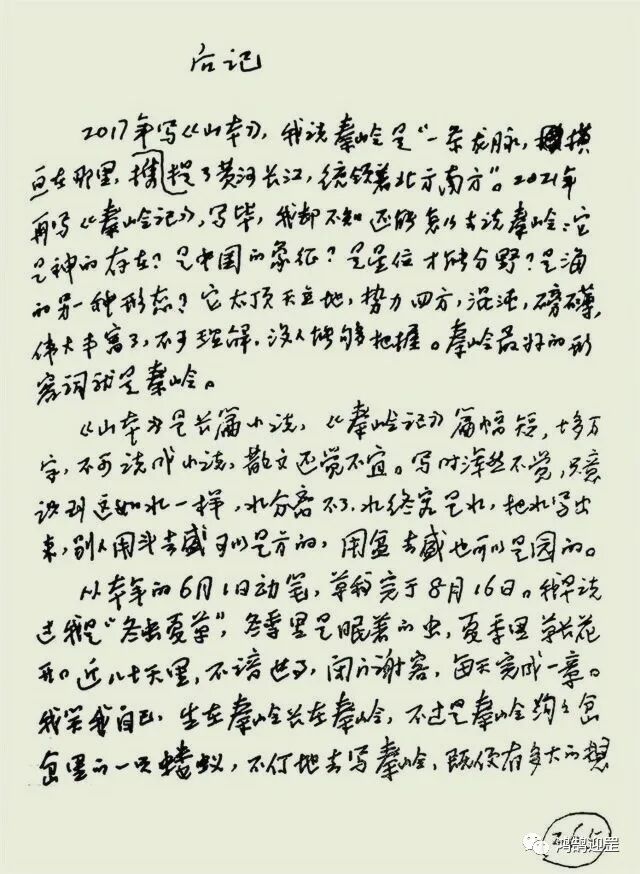 后记
2017年写《山本》，我说秦岭是“一条龙脉，横
亘在那里，提携了黄河长江，统领着北方南方”。2021年
再写《秦岭记》，写毕，我却不知还能怎么去说秦岭：它
是神的存在？是中国的象征？是星位才能分野？是海
的另一种形态？它太顶天立地，势力四方，混沌，磅礴，
伟大丰富了，不可理解，没人能够把握。秦岭最好的形
容词就是秦岭。
《山本》是长篇小说，《秦岭记》篇幅短，十多万
字，不可说成小说，散文还觉不宜。写时浑然不觉，只意
识到这如水一样，水分离不了，水终究是水，把水写出
来，别人用斗去盛可以是方的，用盆去盛也可以是园的。
从本年的6月1日动笔，草稿完于8月16日。我早说
过我是“冬虫夏草”，冬季里是眠着的虫，夏季里草长花
开。近八十天里，不谙世事，闭门谢客，每天完成一章。
我笑我自己，生在秦岭长在秦岭，不过是秦岭沟沟岔
岔里的一只蝼蚁，不停地去写秦岭，既使有多大的想
鸿鹄迎罡